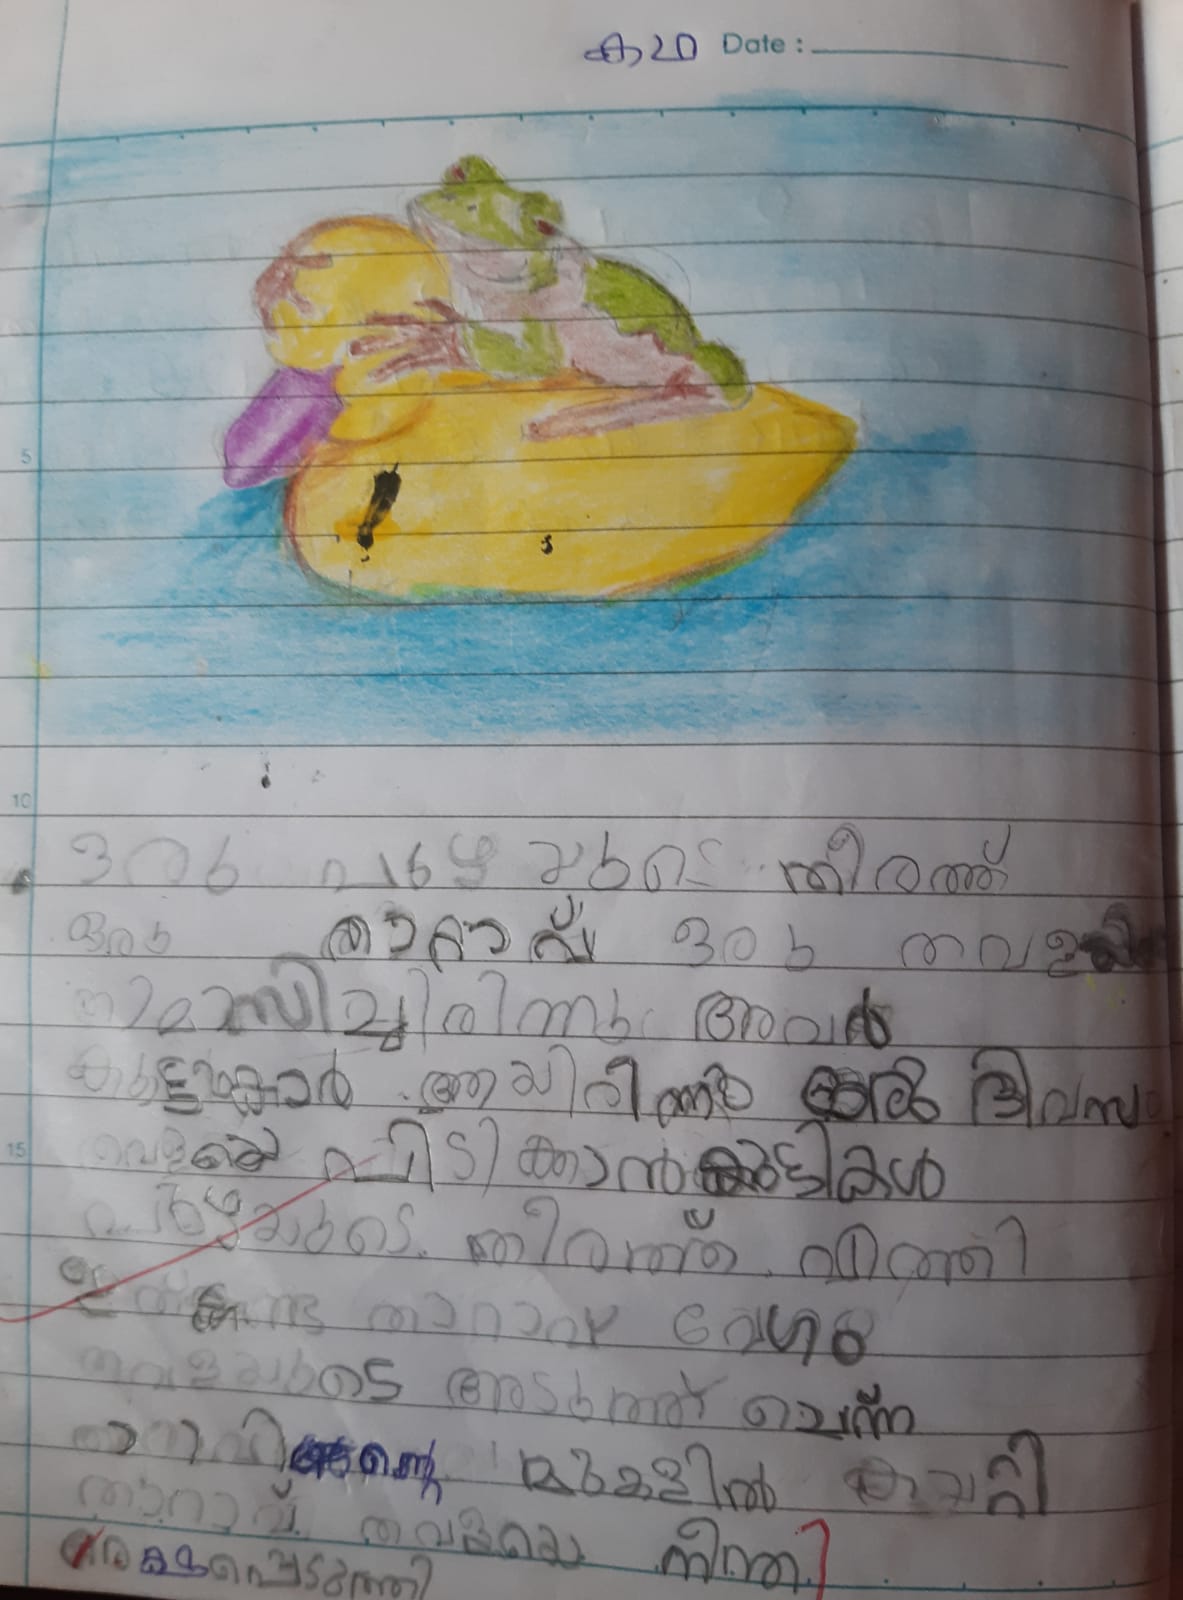 കഥ Date :
ഒരു പുഴയുടെ തീരത്ത്
ഒരു താറാവും ഒരു തവള
താമസിച്ചിരിന്നു അവർ
കുട്ടുകാർ ആയിരിന്നു ഒരു ദിവസം
തവളയെ പിടിക്കാൻ കുട്ടികൾ
5
10
15
പുഴയുടെ തീരത്ത് എത്തി
ഇത് കണ്ട താറാവ് വേഗം
തവളയുടെ അടുത്ത് ചെന്ന്
താറാവിന്റെ മുകളിൽ കയറ്റി
താറാവ് തവളയെ നീന്തി
രക്ഷപ്പെടുത്തി